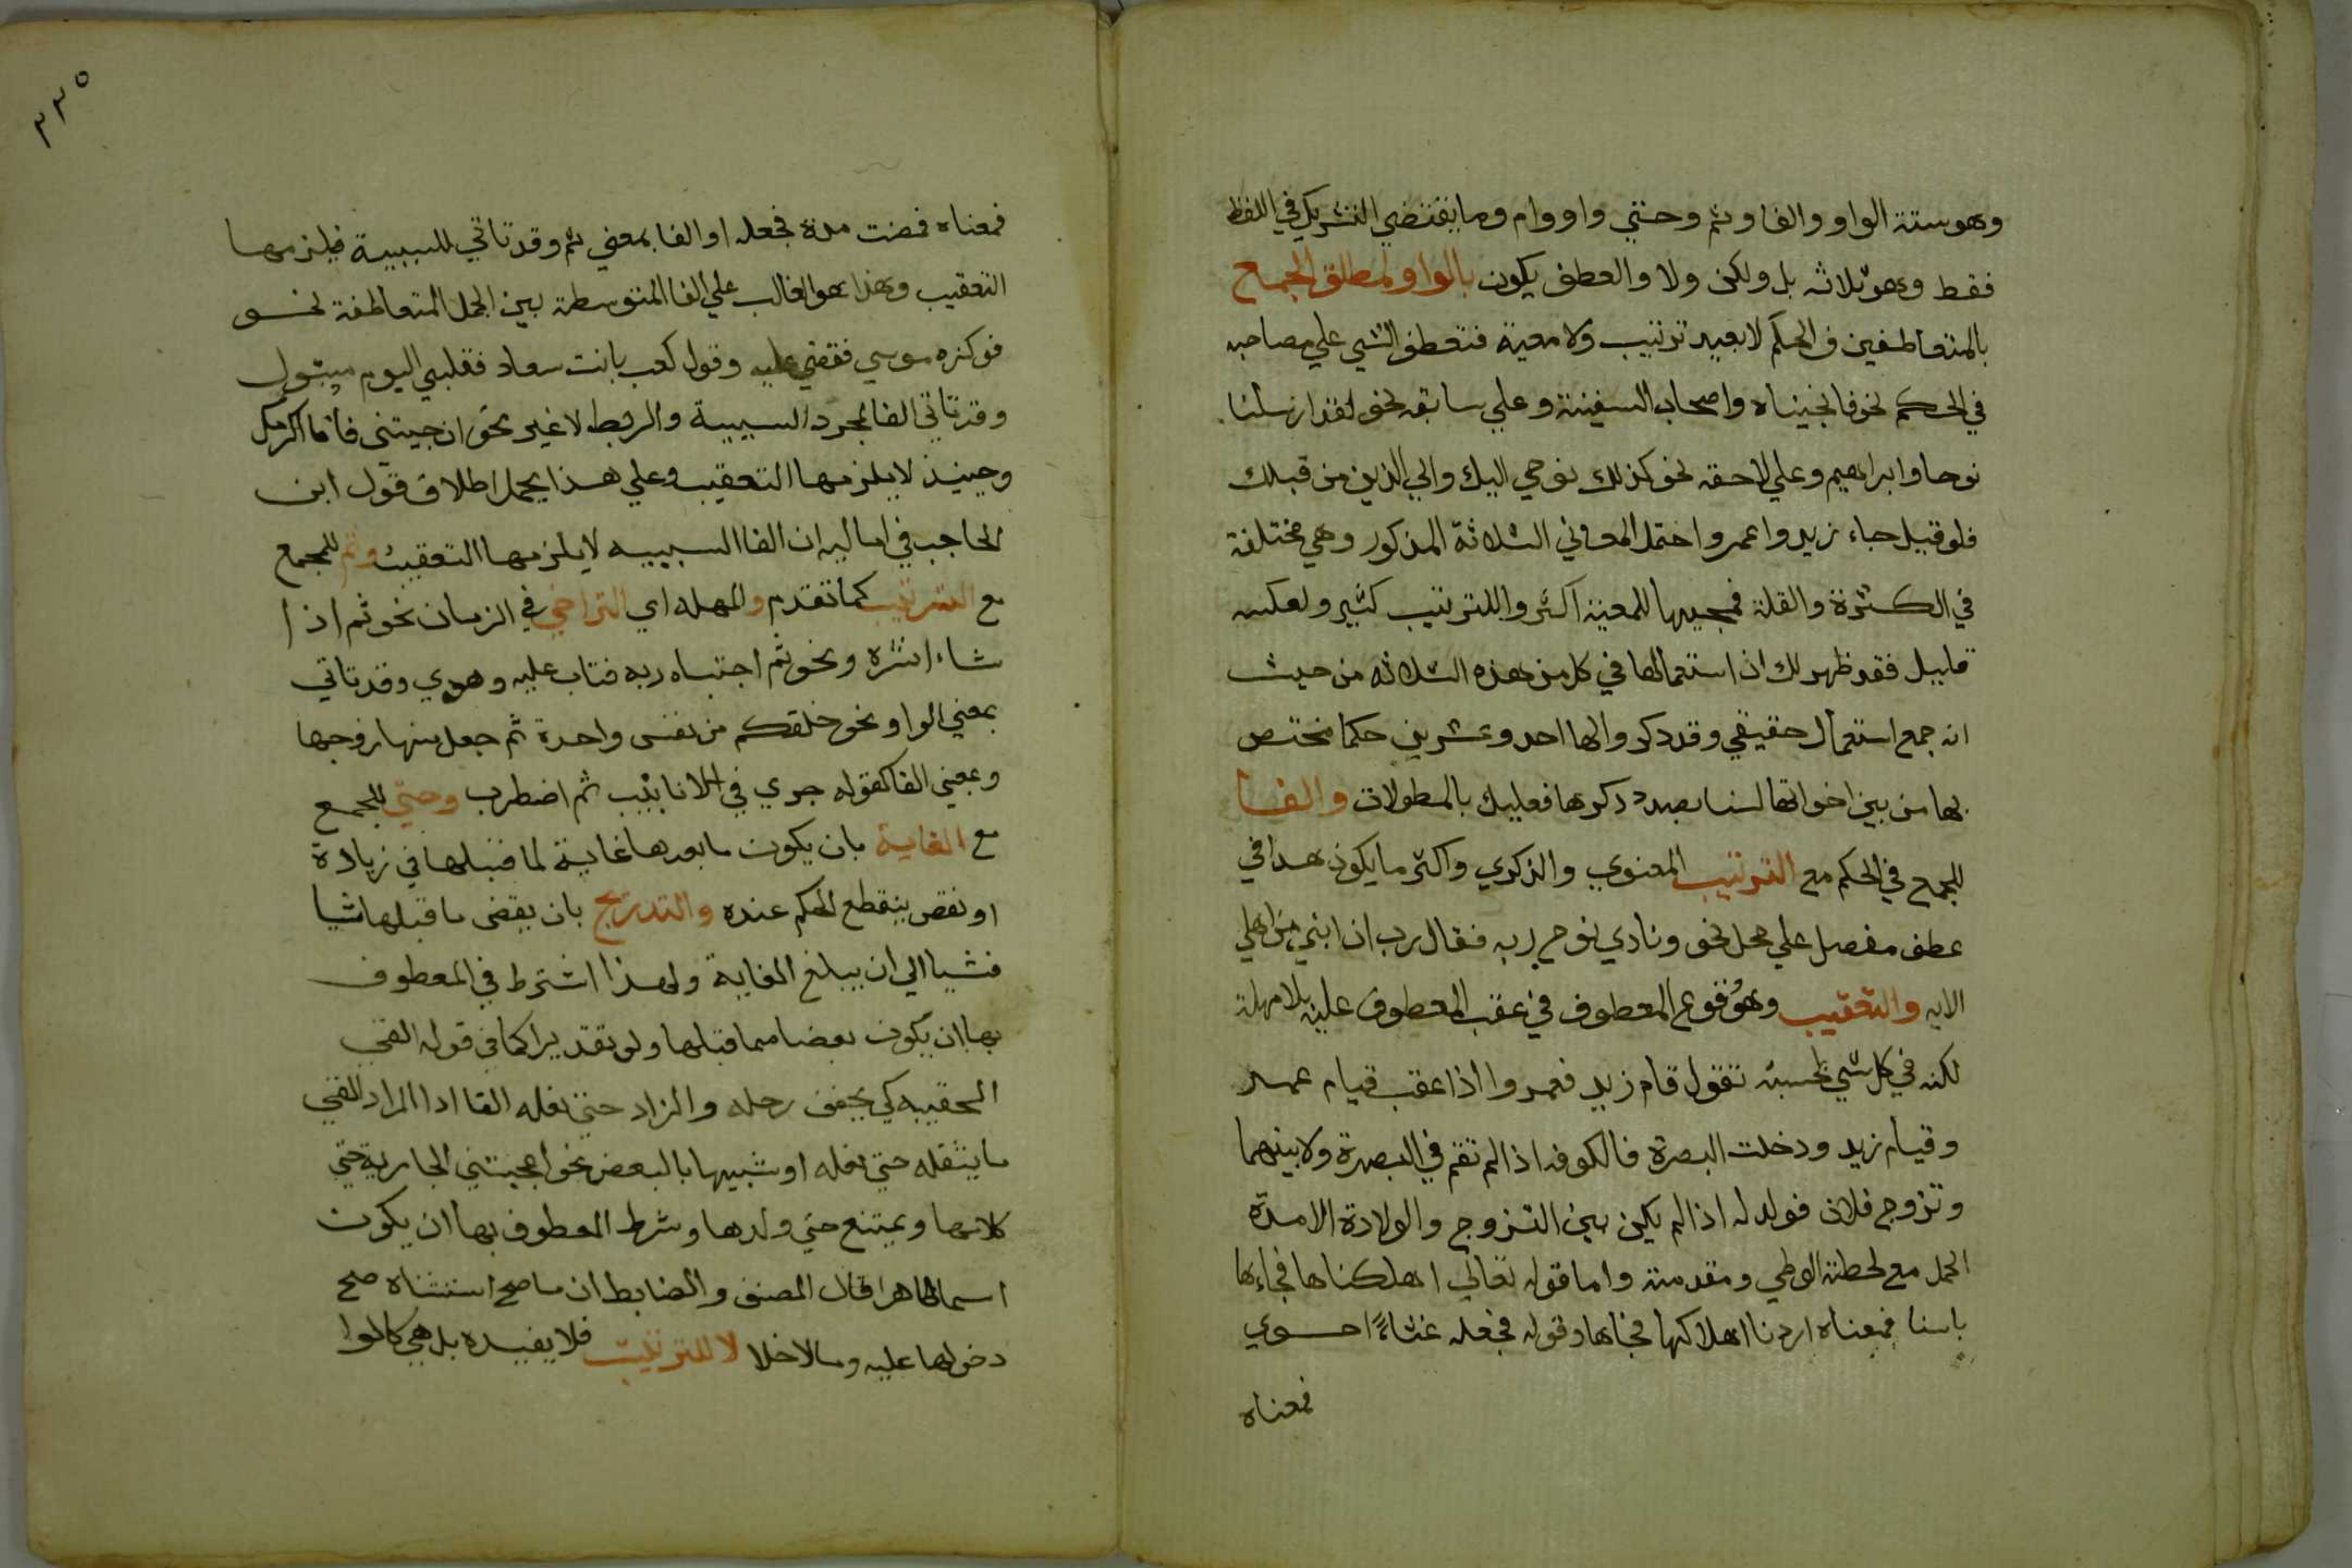 وهو ستة الواو والفا وثم وحتي واو وام وما يقتضي التشريك في اللفظ
فقط وهو ثلاثه بل ولكن ولا والعطف يكون بالواو لمطلق الجمع
بالمتعاطفين في الحكم لا بقيد ترتيب ولا معية فتعطف الشي علي مصاحبه
في الحكم نحو فانجيناه واصحاب السفينة وعلي سابقه نحو لقد ارسلنا
نوحا وابراهيم وعلي لاحقه نحو كذلك نوحي اليك والي الذين من قبلك
فلو قيل جاء زيد واعمروا احتمل المعاني الثلاثة المذكور وهي مختلفة
في الكثرة والقلة فمجيها للمعية اكثر وللترتيب كثير ولعكسه
قليل فقد ظهر لك ان استعمالها في كل من هذه الثلاثه من حيث
انه جمع استعمال حقيقي وقد دكروا لها احد وعشرين حكما تختص
بها من بين اخواتها لسنا بصدد دكرها فعليك بالمطولات والفا
للجمع في الحكم مع الترتيب المعنوي والذكري واكثر ما يكون هذا في
عطف مفصل علي مجمل نحو ونادي نوح ربه فقال رب ان ابني من اهلي
الايه والتعقيب وهو وقوع المعطوف في عقب المعطوف عليه بلا مهلة
لكنه في كل شي بحسبه تقول قام زيد فعمروا اذا عقب قيام عمرو
وقيام زيد ودخلت البصرة فالكوفه اذا لم تقم في البصرة ولا بينهما
وتزوج فلان فولد له اذا لم يكن بين التزوج والولادة الا مدة
الحمل مع لحظة الوطي ومقدمته واما قوله تعالي اهلكناها فجاءها
باسنا فمعناه اردنا اهلاكها فجاها وقوله فجعله غثاءً احوي
فمعناه
٣٣٥
فمعناه فمضت مدة فجعله او الفا بمعني ثم وقد تاتي للسببية فيلزمها
التعقيب وهذا هو الغالب علي الفا المتوسطة بين الجمل المتعاطفة نحو
فوكزه موسي فقضي عليه وقول كعب بانت سعاد فقلبي اليوم متبول
وقد تاتي الفا لمجرد السببية والربط لا غير نحو ان جيتني فانا اكرمك
وحينيذ لا يلزمها التعقيب وعلي هذا يحمل اطلاق قول ابن
الحاجب في اماليه ان الفا السببيه لا يلزمها التعقيب وثم للجمع
مع الترتيب كما تقدم والمهله اي التراخي في الزمان نحو ثم اذا
شاء انشره ونحو ثم اجتباه ربه فتاب عليه وهدي وقد تاتي
بمعني الواو نحو خلقكم من نفس واحدة ثم جعل منها زوجها
وبمعني الفا كقوله جري في الانابيب ثم اضطرب وحتي للجمع
مع الغاية بان يكون ما بعدها غاية لما قبلها في زيادة
او نقص ينقطع الحكم عنده والتدريج بان يقضي ما قبلها شيا
فشيا الي ان يبلغ الغاية ولهذا اشترط في المعطوف
بها ان يكون بعضا مما قبلها ولو تقديرا كما في قوله القي
الحقيبه كي يخفف رحله والزاد حتي نعله القا اذا المراد القي
ما يثقله حتي نعله او شبيها بالبعض نحو اعجبتني الجارية حتي
كلامها ويمتنع حتي ولدها وشرط المعطوف بها ان يكون
اسما ظاهرا قال المصنف والضابط ان ما صح استثناه صح
دخولها عليه وما لا خلا لا للترتيب فلا يفيده بل هي كالوا